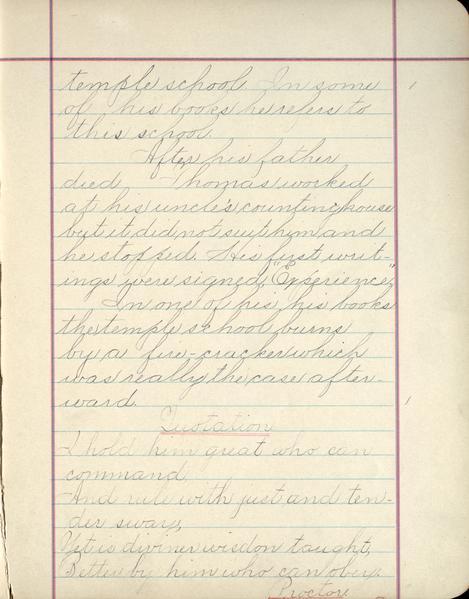 temple school. In some
of his books he refers to
this school.
After his father
died Thomas worked
at his uncle's counting house
but it did not suit him and
he stopped. His first writ-
ings were signed, "Experience,"
In one of his his books
the temple school burns
by a fire-cracker which
was really the case after-
ward.
Quotation
I hold him great who can
command
And rule with just and ten-
der sway,
Yet is diviner wisdon taught,
Better by him who can obey.
Proctor.